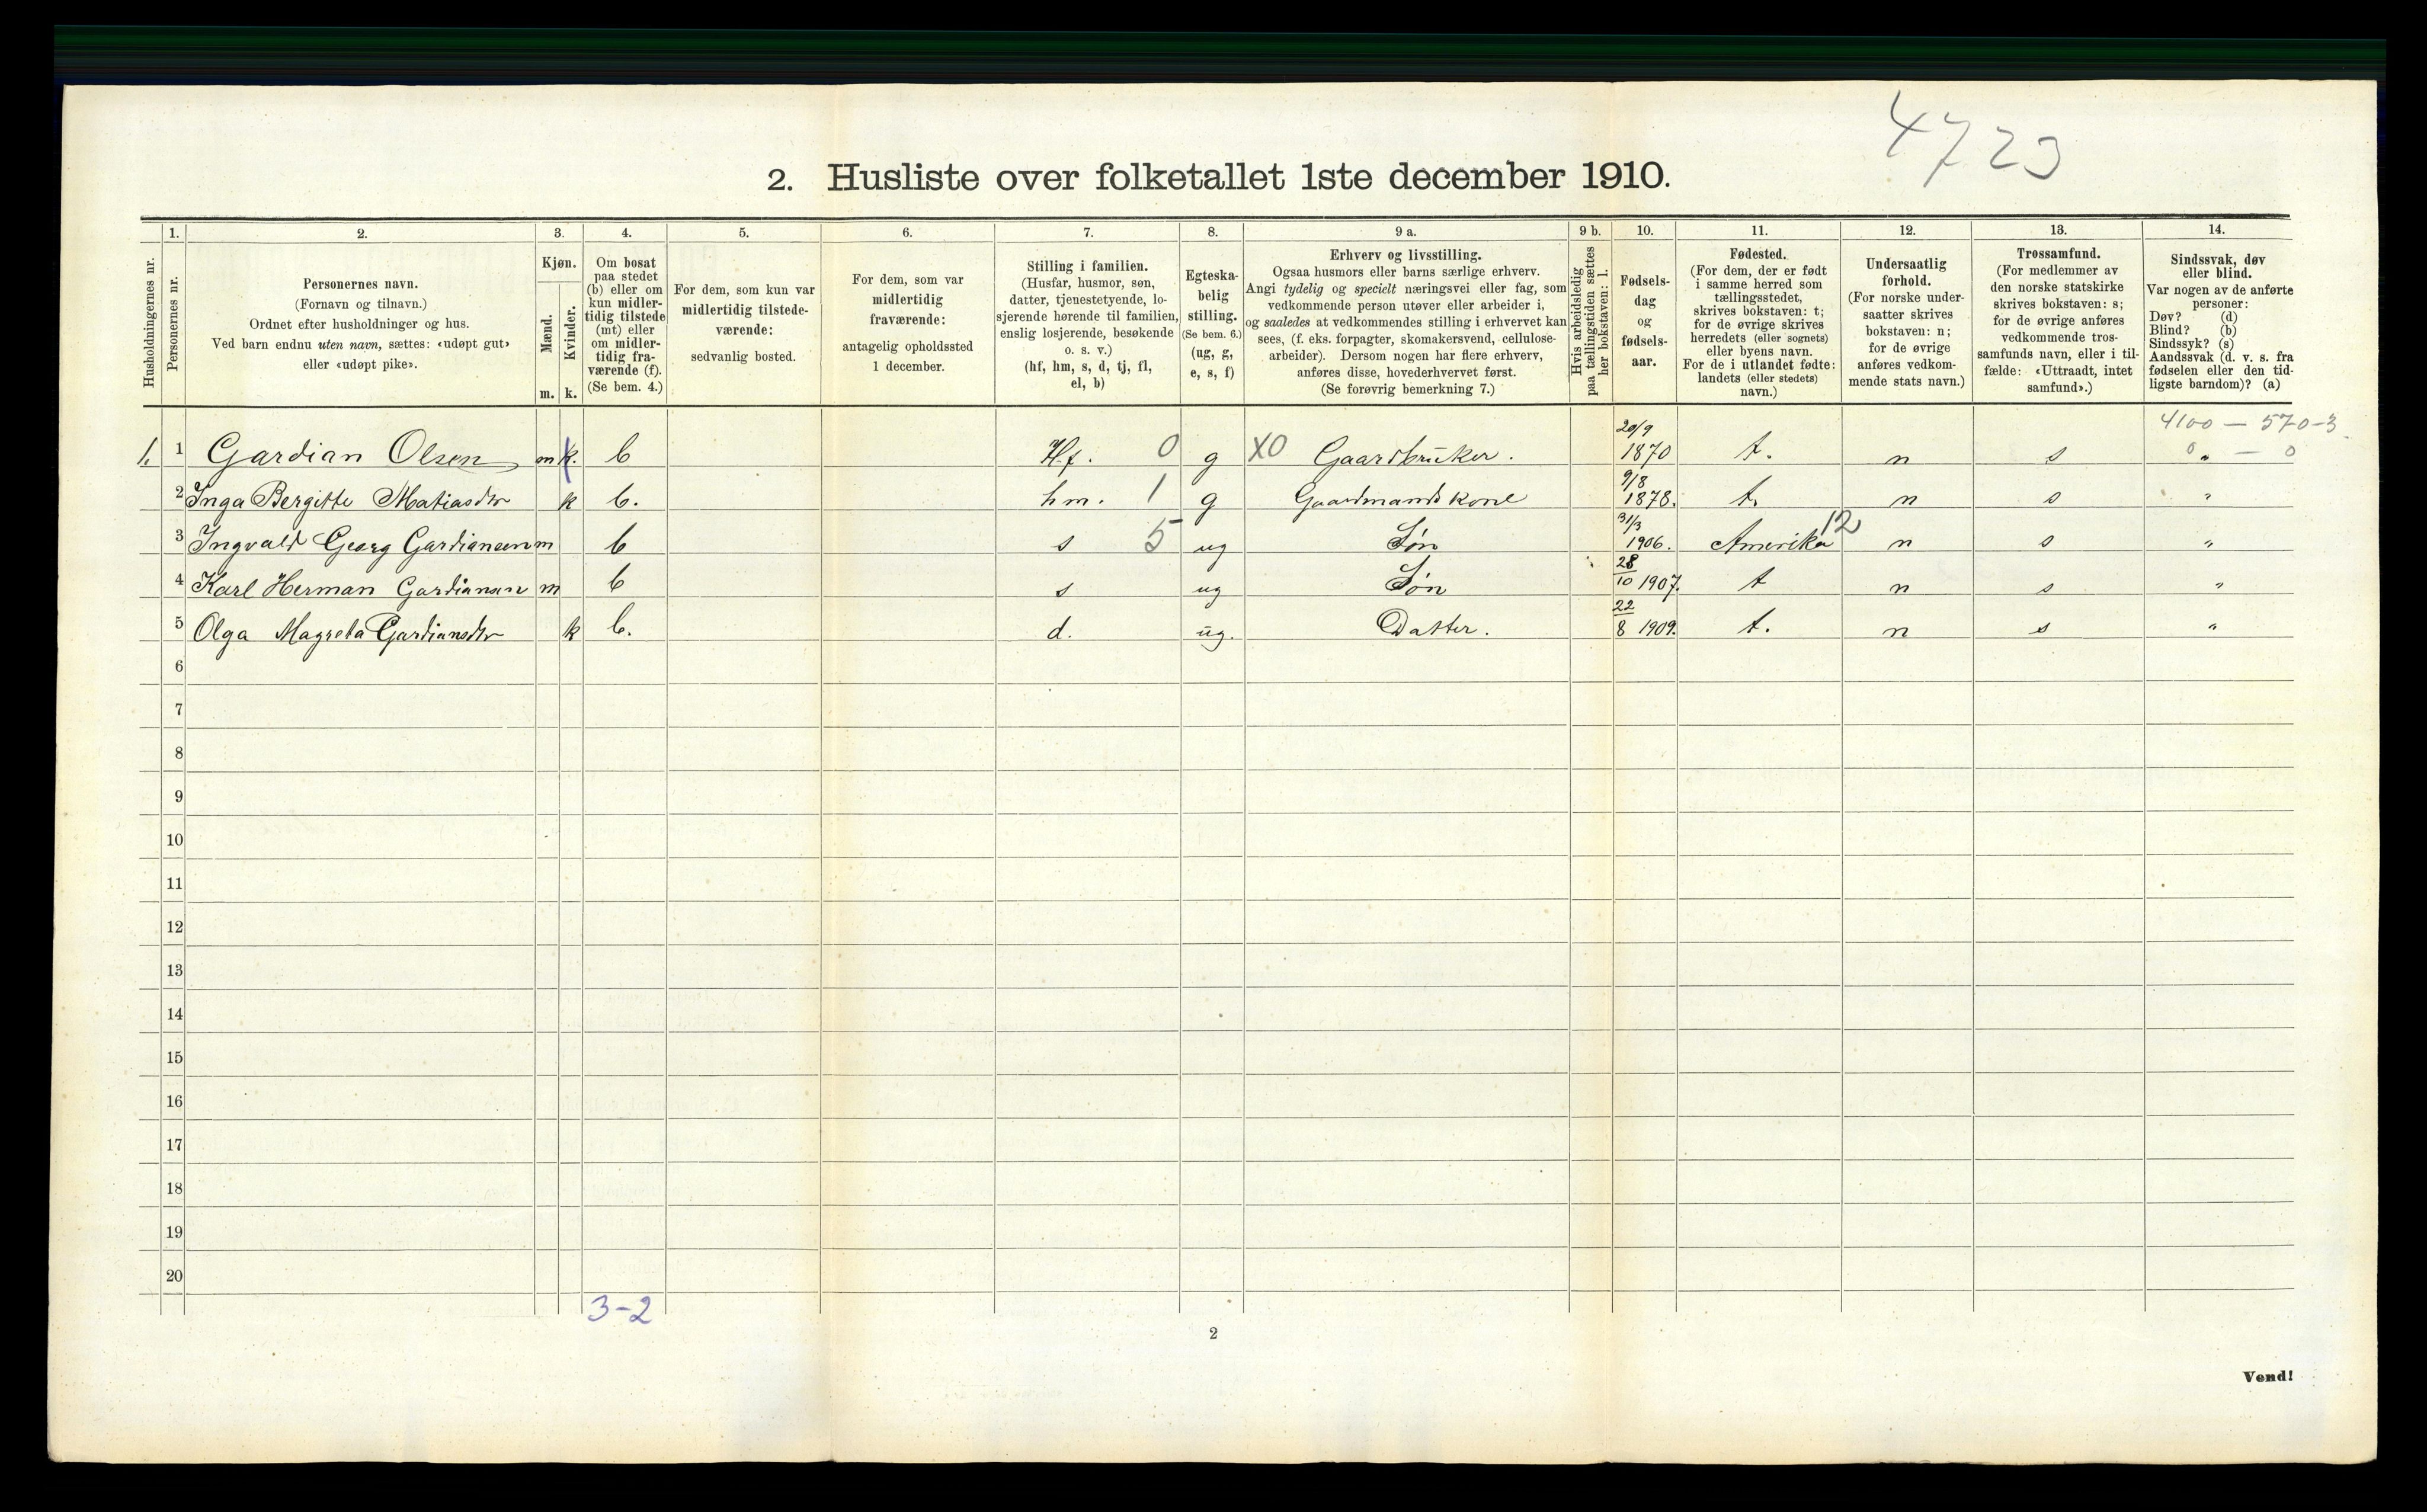 4723
2. Husliste over folketallet 1ste december 1910.
Husholdningernes nr.
1.
Personernes nr.
2.
Personernes navn.
(Fornavn og tilnavn.)
Ordnet efter husholdninger og hus.
Ved barn endnu uten navn, sættes: «udøpt gut»
eller «udøpt pike».
3.
Kjøn.
Mænd.
Kvinder.
m. k.
4.
Om bosat
paa stedet
(b) eller om
kun midler-
tidig tilstede
(mt) eller
om midler-
tidig fra-
værende (f).
(Se bem. 4.)
5.
For dem, som kun var
midlertidig tilstede-
værende:
sedvanlig bosted.
6.
For dem, som var
midlertidig
fraværende:
antagelig opholdssted
1 december.
7.
Stilling i familien.
(Husfar, husmor, søn,
datter, tjenestetyende, lo-
sjerende hørende til familien,
enslig losjerende, besøkende
o. s. v.)
(hf, hm, s, d, tj, fl,
el, b)
8.
Egteska-
belig
stilling.
(Se bem. 6.)
(ug, g,
e, s, f)
9 a.
Erhverv og livsstilling.
Ogsaa husmors eller barns særlige erhverv.
Angi tydelig og specielt næringsvei eller fag, som
vedkommende person utøver eller arbeider i,
og saaledes at vedkommendes stilling i erhvervet kan
sees, (f. eks. forpagter, skomakersvend, cellulose-
arbeider). Dersom nogen har flere erhverv,
anføres disse, hovederhvervet først.
(Se forøvrig bemerkning 7.)
9 b.
Hvis arbeidsledig
paa tællingstiden sættes
her bokstaven: l.
10.
Fødsels-
dag
og
fødsels-
aar.
11.
Fødested.
(For dem, der er født
i samme herred som
tællingsstedet,
skrives bokstaven: t;
for de øvrige skrives
herredets (eller sognets)
eller byens navn.
For de i utlandet fødte:
landets (eller stedets)
navn.)
12.
Undersaatlig
forhold.
(For norske under-
saatter skrives
bokstaven: n;
for de øvrige
anføres vedkom-
mende stats navn.)
13.
Trossamfund.
(For medlemmer av
den norske statskirke
skrives bokstaven: s;
for de øvrige anføres
vedkommende tros-
samfunds navn, eller i til-
fælde: «Uttraadt, intet
samfund».)
14.
Sindssvak, døv
eller blind.
Var nogen av de anførte
personer:
Døv? (d)
Blind? (b)
Sindssyk? (s)
Aandssvak (d. v. s. fra
fødselen eller den tid-
ligste barndom)? (a)
4100 — 570-3
1. 1 Gardian Olsen m k. b Hf. 0 g X0 Gaardbruker. 20/9 1870 t. n s 0 „ — 0
2 Inga Bergitte Matiasdtr k b. hm. 1 g Gaardmandskone 9/8 1878. t. n s "
3 Ingvald Georg Gardiansen m b s 5 ug Søn 31/3 1906. Amerika 12 n s "
4 Karl Herman Gardiansen m b s ug Søn 28/10 1907. t n s "
5 Olga Magreta Gardiansdtr k b. d. ug. Datter. 22/8 1909. t. n s "
6
7
8
9
10
11
12
13
14
15
16
17
18
19
20
3-2
2
Vend!